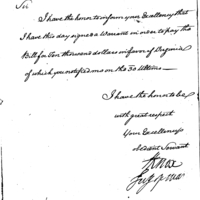 Sir
I have the honor to inform your Excellency that
I have this day signed a Warrant in order to pay the
Bill for Ten thousand dollars in favor of
of which you notified me on the 30 Ultimo.
I have the honor to be
with great respect
Your Excellency's
obedient Servant